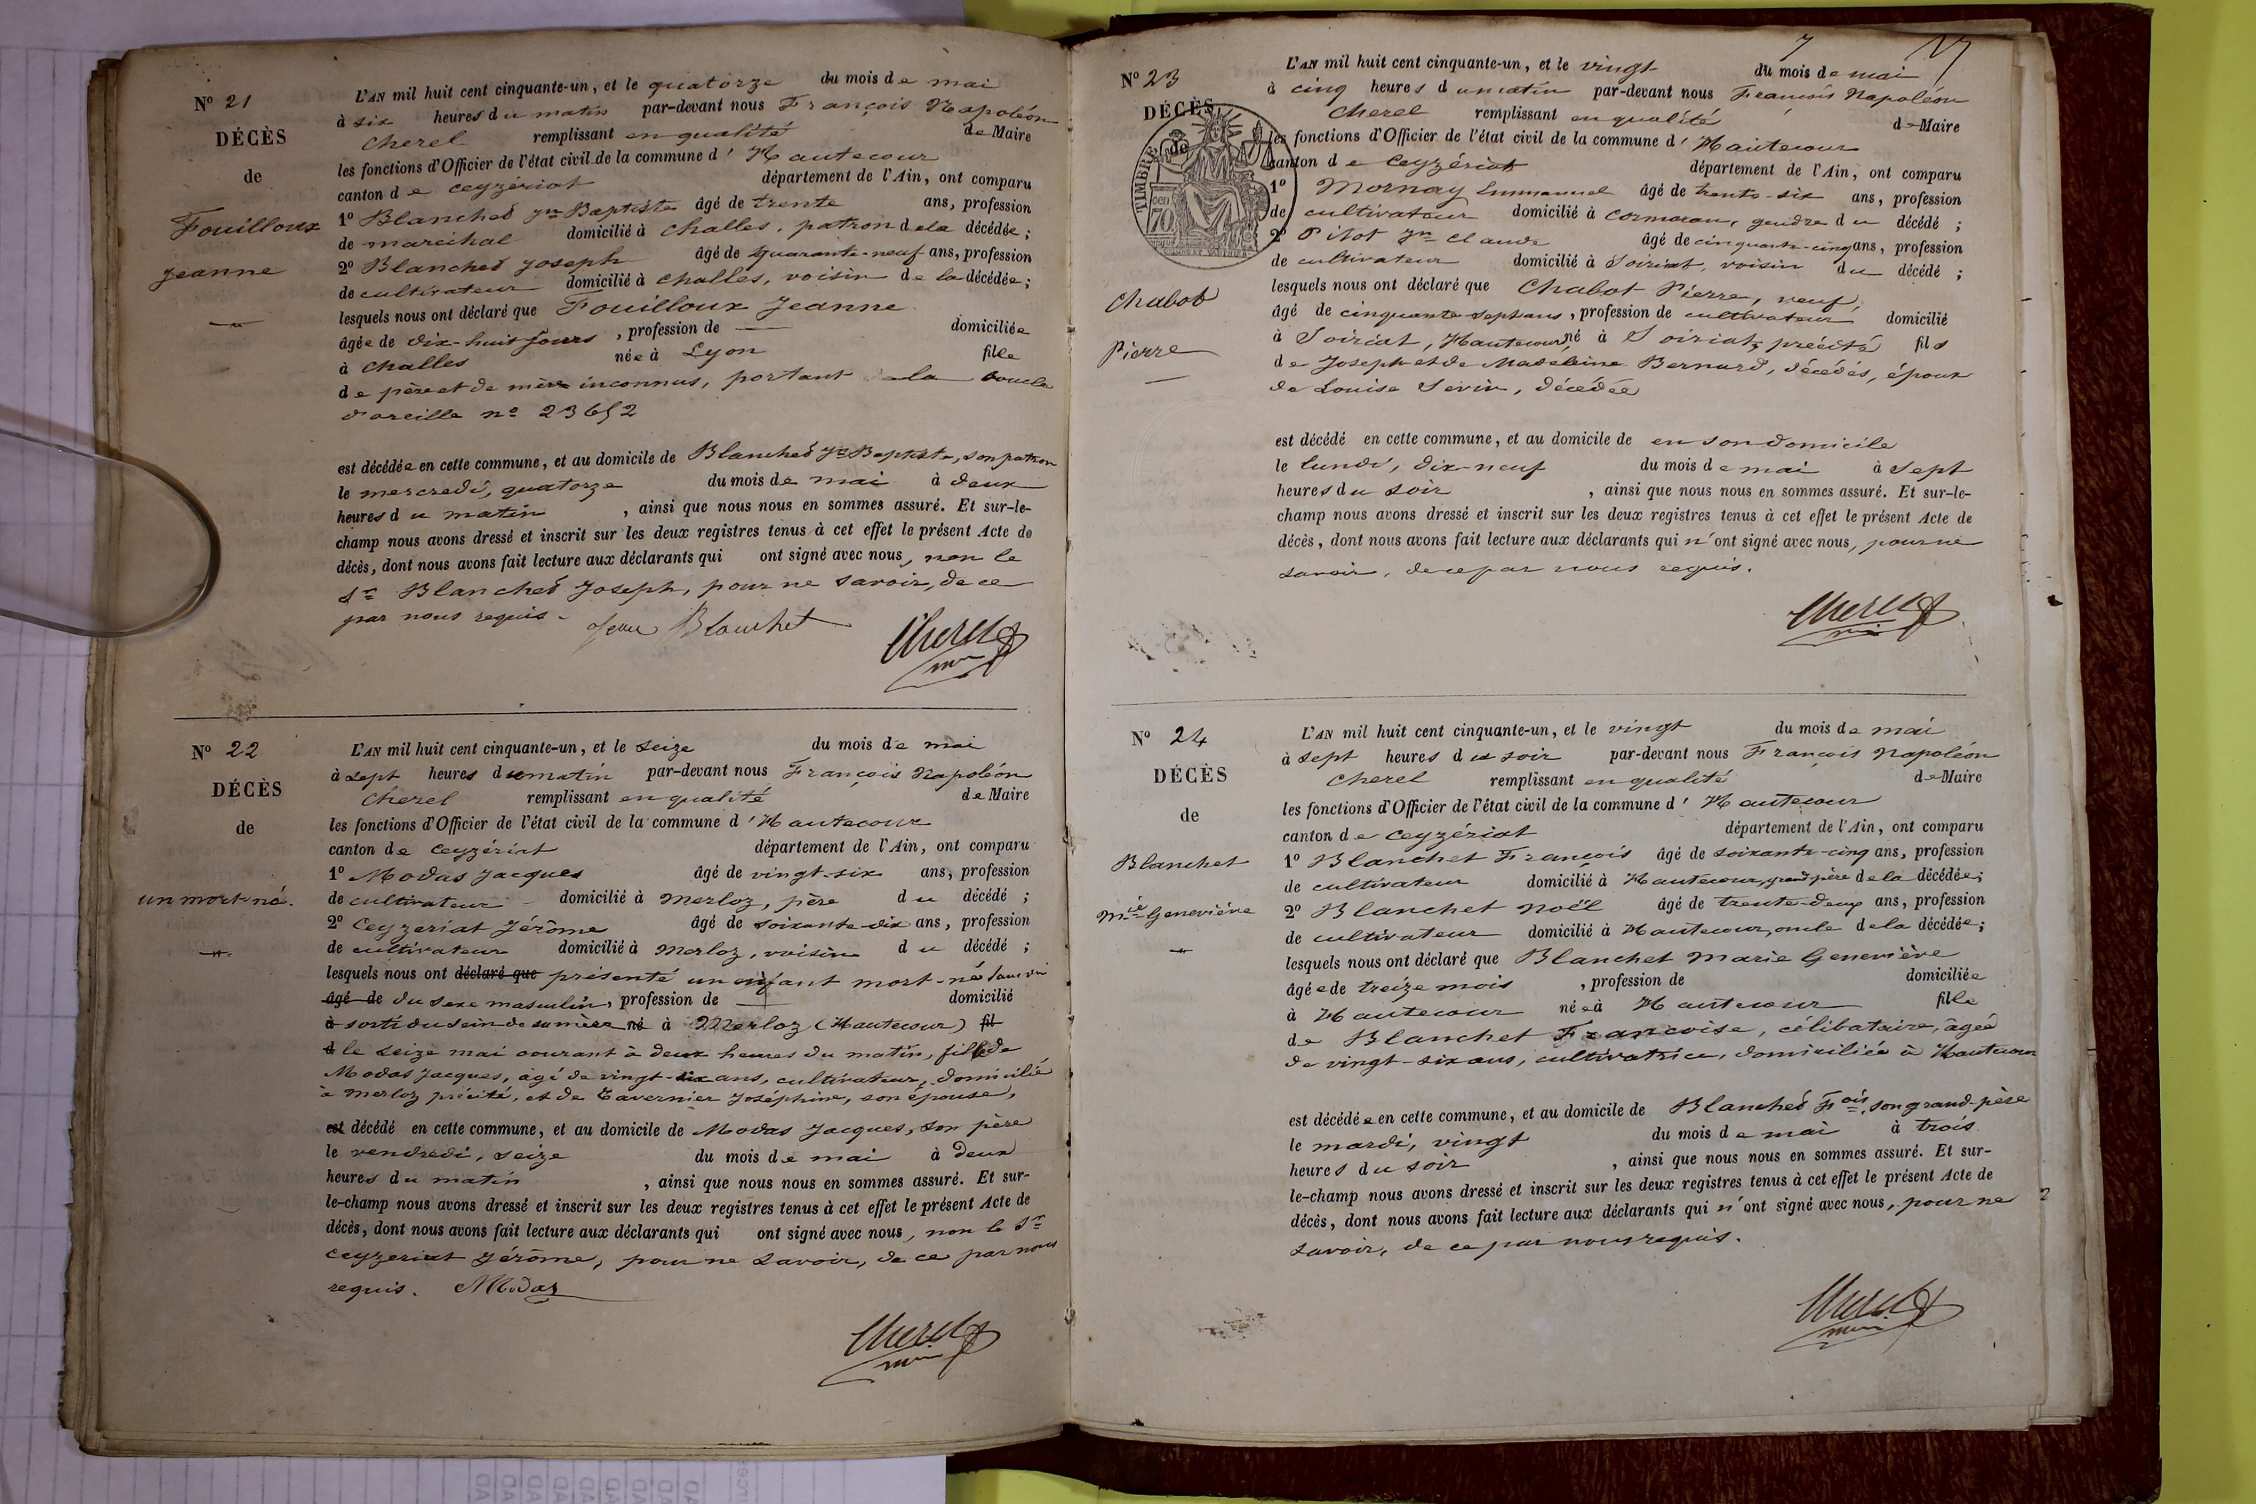 Nº 21
DÉCÈS
de
Fouilloux
Jeanne
L'AN mil huit cent cinquante-un, et le quatorze du mois de mai
à six heures du matin par-devant nous François Napoléon
Cherel remplissant en qualité de Maire
les fonctions d'Officier de l'état civil de la commune d'Hautecour
canton de Ceyzériat département de l'Ain, ont comparu
1º Blanchet Jn Baptiste âgé de trente ans, profession
de maréchal domicilié à Challes, patron de la décédée;
2º Blanchet Joseph âgé de quarante-neuf ans, profession
de cultivateur domicilié à Challes, voisin de la décédée;
lesquels nous ont déclaré que Fouilloux Jeanne
âgée de dix-huit jours, profession de — domiciliée
à Challes née à Lyon fille
de père et de mère inconnus, portant la boucle
d'oreille nº 23652
est décédée en cette commune, et au domicile de Blanchet Jn Baptiste, son patron
le mercredi, quatorze du mois de mai à deux
heures du matin, ainsi que nous nous en sommes assuré. Et sur-le-
champ nous avons dressé et inscrit sur les deux registres tenus à cet effet le présent Acte de
décès, dont nous avons fait lecture aux déclarants qui ont signé avec nous, non le
Sr Blanchet Joseph, pour ne savoir, de ce
par nous requis. Jean Blanchet
Cherel
Nº 22
DÉCÈS
de
un mort-né.
L'AN mil huit cent cinquante-un, et le seize du mois de mai
à sept heures du matin par-devant nous François Napoléon
Cherel remplissant en qualité de Maire
les fonctions d'Officier de l'état civil de la commune d'Hautecour
canton de Ceyzériat département de l'Ain, ont comparu
1º Modas Jacques âgé de vingt-six ans, profession
de cultivateur domicilié à Merloz, père du décédé;
2º Ceyzeriat Jérôme âgé de soixante-dix ans, profession
de cultivateur domicilié à Merloz, voisin du décédé;
lesquels nous ont déclaré que présenté un enfant mort-né
âgé de du sexe masculin, profession de — domicilié
à sorti du sein de sa mère né à Merloz (Hautecour) fil
d le seize mai courant à deux heures du matin, fils de
Modas Jacques, âgé de vingt-six ans, cultivateur, domicilié
à Merloz précité, et de Tavernier Joséphine, son épouse,
est décédé en cette commune, et au domicile de Modas Jacques, son père
le vendredi, seize du mois de mai à deux
heures du matin, ainsi que nous nous en sommes assuré. Et sur-
le-champ nous avons dressé et inscrit sur les deux registres tenus à cet effet le présent Acte de
décès, dont nous avons fait lecture aux déclarants qui ont signé avec nous, non le Sr
Ceyzeriat Jérôme, pour ne savoir, de ce par nous
requis. Modas
Cherel
Nº 23
DÉCÈS
de
TIMBRE
70
Chabot
Pierre
L'AN mil huit cent cinquante-un, et le vingt du mois de mai
à cinq heures du matin par-devant nous François Napoléon
Cherel remplissant en qualité de Maire
les fonctions d'Officier de l'état civil de la commune d'Hautecour
canton de Ceyzériat département de l'Ain, ont comparu
1º Mornay Emmanuel âgé de trente-six ans, profession
de cultivateur domicilié à Cormoran, gendre du décédé;
2º Pitot Jn Claude âgé de cinquante-cinq ans, profession
de cultivateur domicilié à Soiriat, voisin du décédé;
lesquels nous ont déclaré que Chabot Pierre, veuf,
âgé de cinquante-sept ans, profession de cultivateur domicilié
à Soiriat, Hautecour, né à Soiriat, précité fils
de Joseph et de Madeleine Bernard, décédés, époux
de Louise Sevin, décédée
est décédé en cette commune, et au domicile de en son domicile
le lundi, dix-neuf du mois de mai à sept
heures du soir, ainsi que nous nous en sommes assuré. Et sur-le-
champ nous avons dressé et inscrit sur les deux registres tenus à cet effet le présent Acte de
décès, dont nous avons fait lecture aux déclarants qui n'ont signé avec nous, pour ne
savoir, de ce par nous requis.
Cherel
Nº 24
DÉCÈS
de
Blanchet
Mie Geneviève
L'AN mil huit cent cinquante-un, et le vingt du mois de mai
à sept heures du soir par-devant nous François Napoléon
Cherel remplissant en qualité de Maire
les fonctions d'Officier de l'état civil de la commune d'Hautecour
canton de Ceyzériat département de l'Ain, ont comparu
1º Blanchet François âgé de soixante-cinq ans, profession
de cultivateur domicilié à Hautecour, grand-père de la décédée;
2º Blanchet Noël âgé de trente-deux ans, profession
de cultivateur domicilié à Hautecour, oncle de la décédée;
lesquels nous ont déclaré que Blanchet Marie Geneviève
âgée de treize mois, profession de domiciliée
à Hautecour née à Hautecour fille
de Blanchet Françoise, célibataire, âgée
de vingt-six ans, cultivatrice, domiciliée à Hautecour
est décédée en cette commune, et au domicile de Blanchet Fois, son grand-père
le mardi, vingt du mois de mai à trois
heures du soir, ainsi que nous nous en sommes assuré. Et sur-
le-champ nous avons dressé et inscrit sur les deux registres tenus à cet effet le présent Acte de
décès, dont nous avons fait lecture aux déclarants qui n'ont signé avec nous, pour ne
savoir, de ce par nous requis.
Cherel